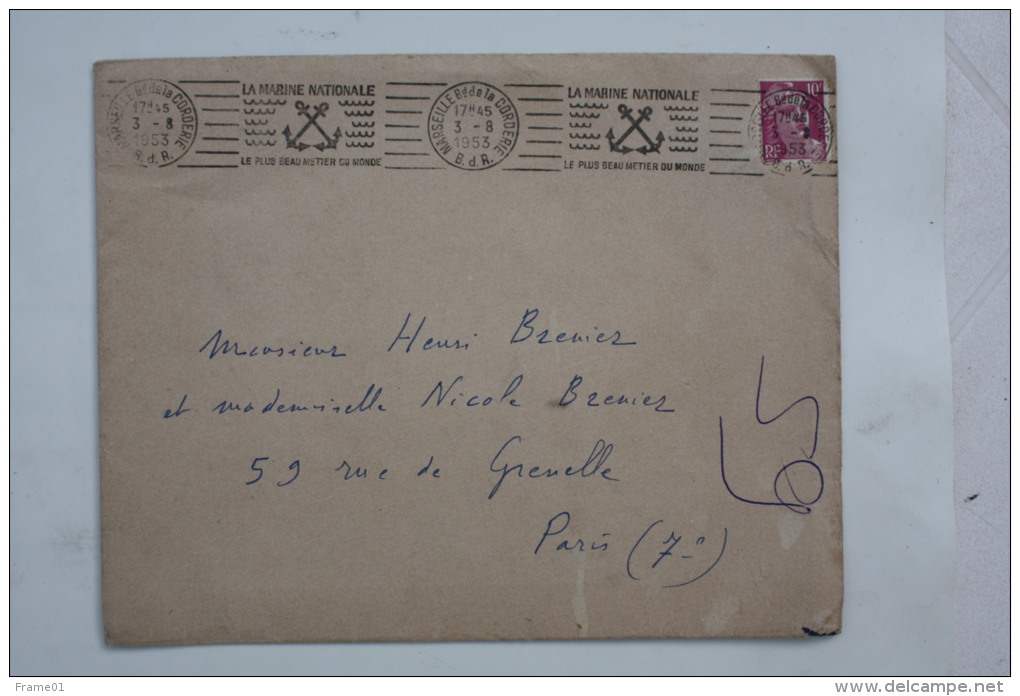 MARSEILLE Bd de la CORDERIE
17H45
3 - 8
1953
B. d. R.
LA MARINE NATIONALE
LE PLUS BEAU METIER DU MONDE
MARSEILLE Bd de la CORDERIE
17H45
3 - 8
1953
B. d. R.
LA MARINE NATIONALE
LE PLUS BEAU METIER DU MONDE
10F
RF
MARSEILLE Bd de la CORDERIE
17H45
3 - 8
1953
B. d. R.
Monsieur Henri Brenier
et mademoiselle Nicole Brenier
59 rue de Grenelle
Paris (7e)
65
Frame01
www.delcampe.net